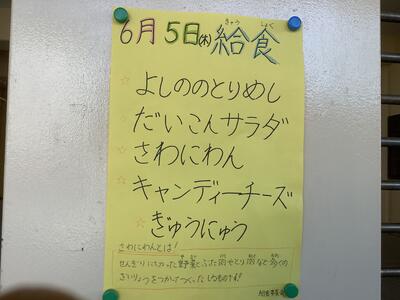 6月5日(木)給食
よしののとりめし
だいこんサラダ
さわにわん
キャンディーチーズ
ぎゅうにゅう
さわにわんとは!
せんぎりにきった野菜とぶた肉やとり肉など多くの
ざいりょうをつかってつくったしるものです。